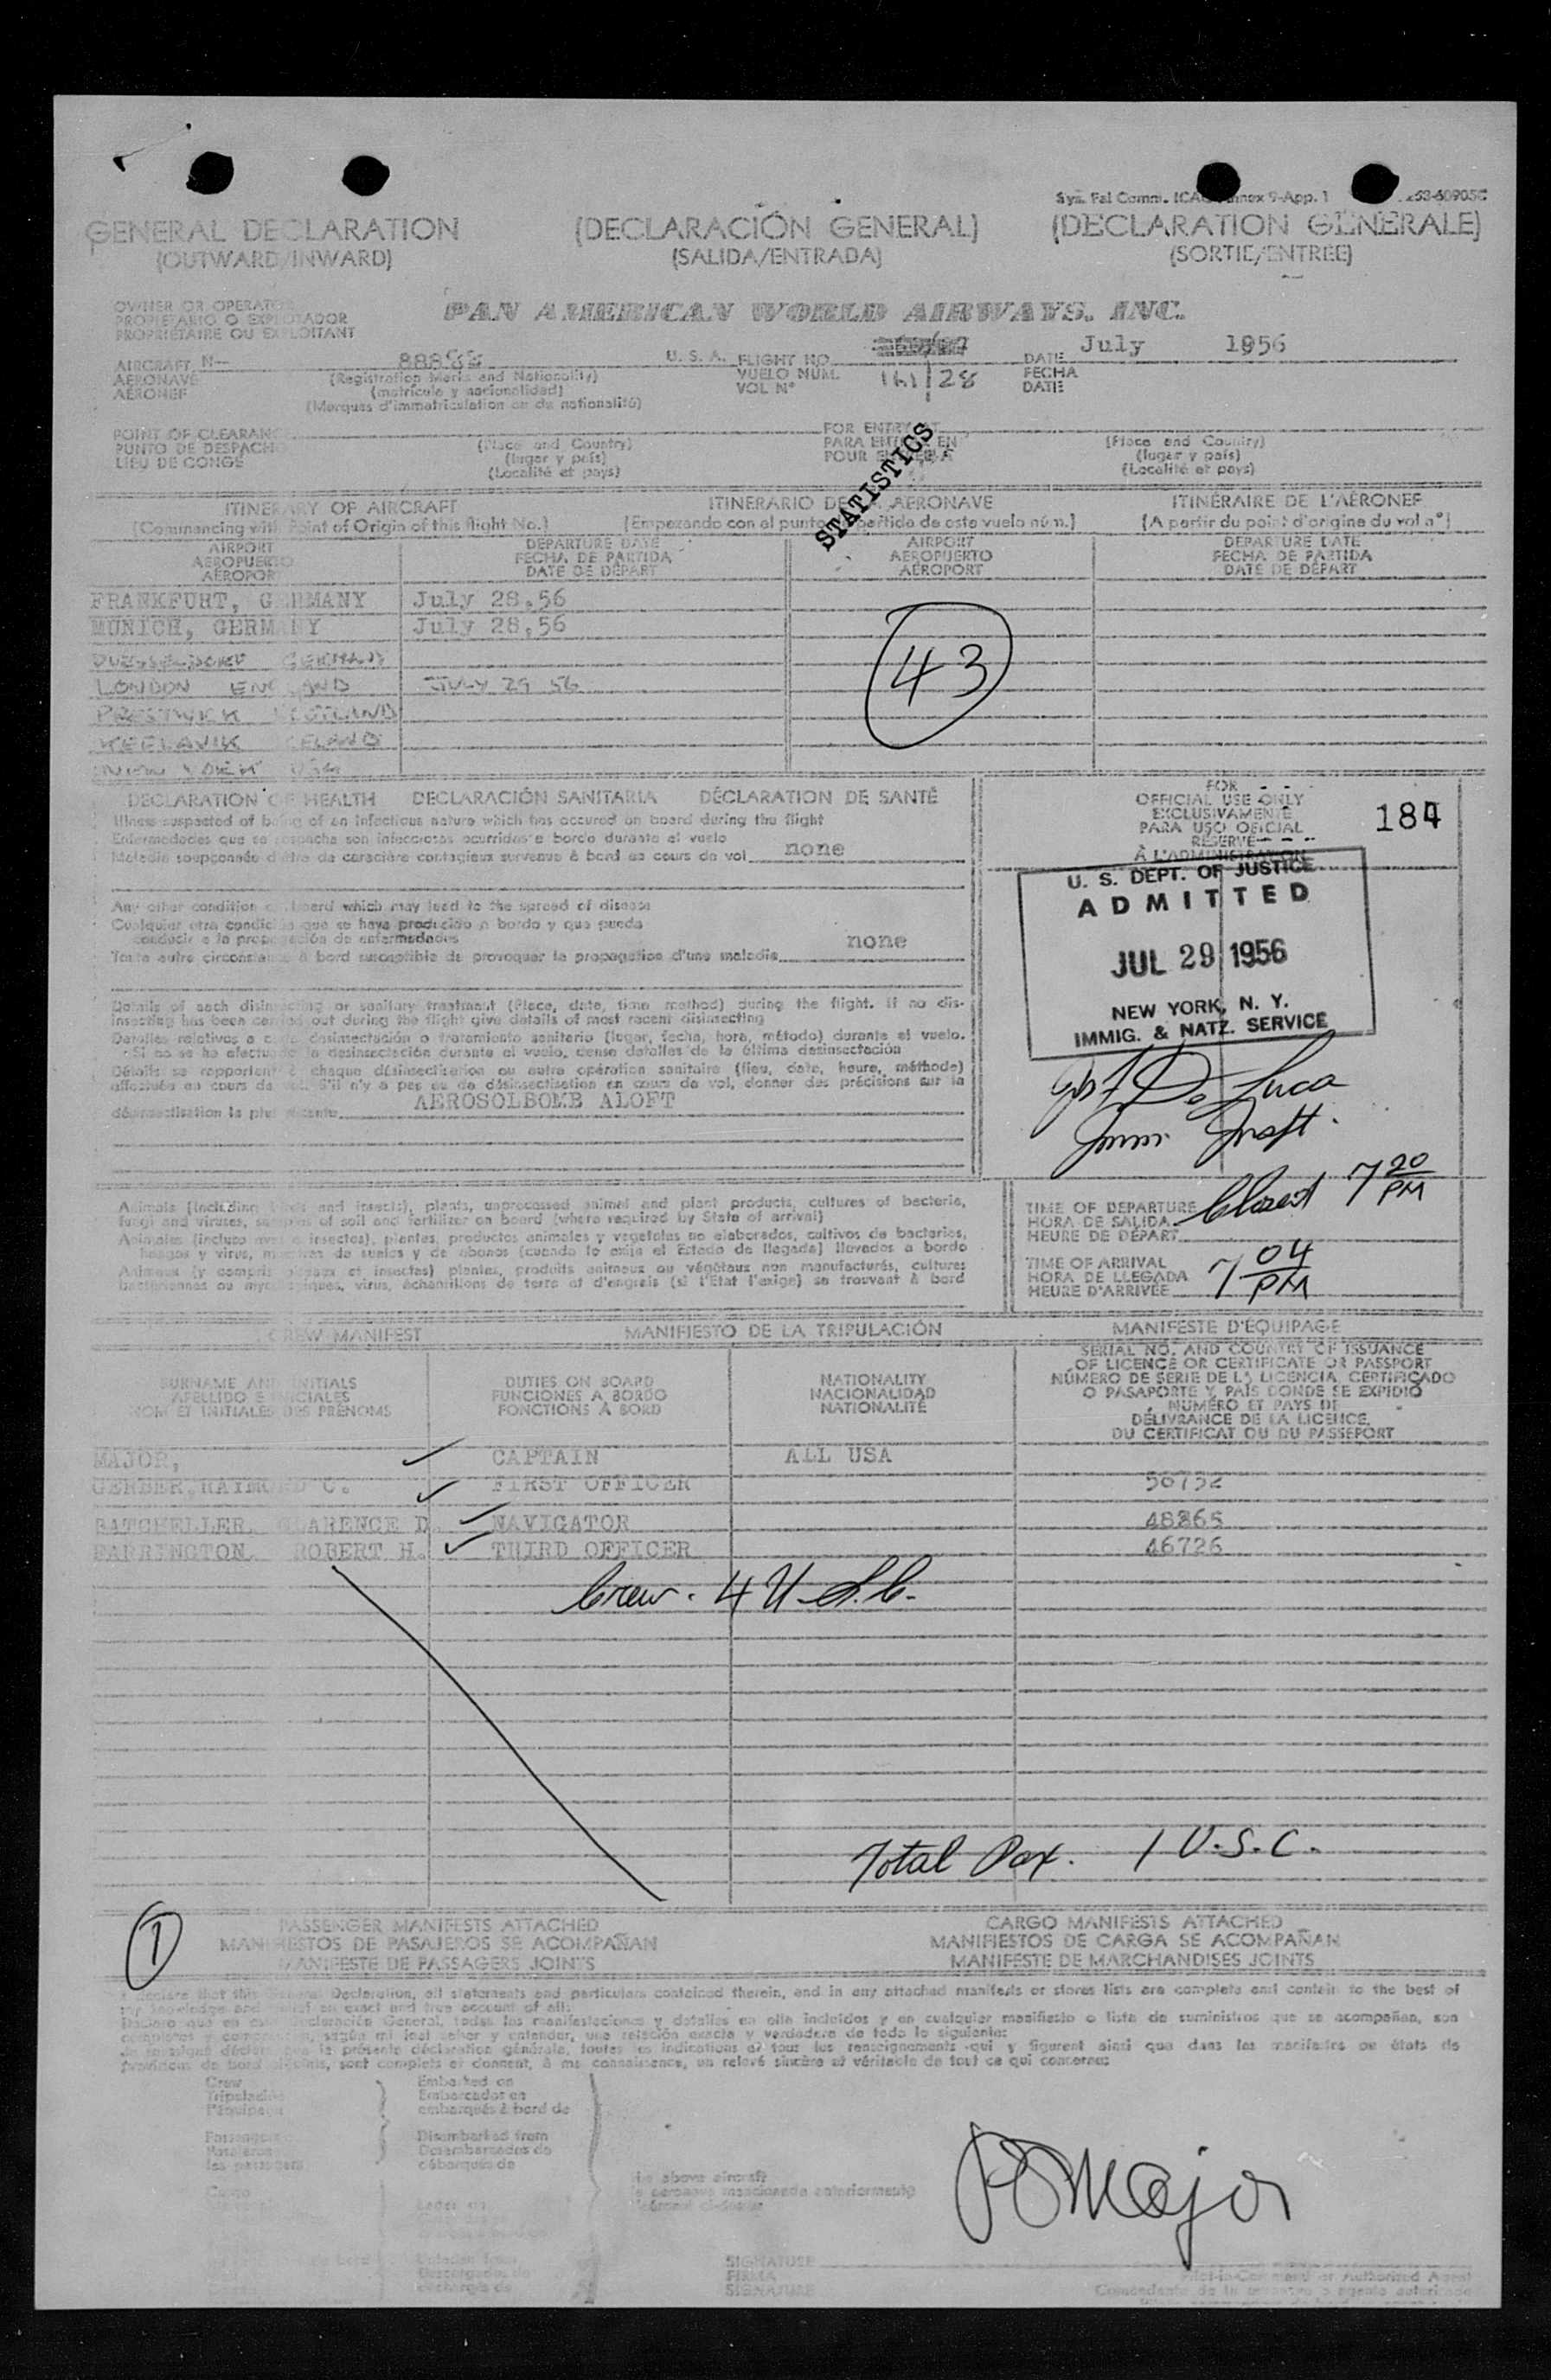 Sys. Fal Comm. ICAO Annex 9-App. 1
GENERAL DECLARATION (DECLARACIÓN GENERAL) (DECLARATION GÉNÉRALE)
(OUTWARD/INWARD) (SALIDA/ENTRADA) (SORTIE/ENTRÉE)
OWNER OR OPERATOR
PROPIETARIO O EXPLOTADOR
PROPRIÉTAIRE OU EXPLOITANT
PAN AMERICAN WORLD AIRWAYS, INC.
AIRCRAFT N— U. S. A. FLIGHT NO. DATE July 1956
AERONAVE (Registration Marks and Nationality) VUELO NÚM. FECHA
AÉRONEF (matrícula y nacionalidad) VOL N° DATE
(Marques d'immatriculation ou de nationalité)
POINT OF CLEARANCE FOR ENTRY AT
PUNTO DE DESPACHO (Place and Country) PARA ENTRAR EN (Place and Country)
LIEU DE CONGÉ (lugar y país) POUR (lugar y país)
(Localité et pays) (Localité et pays)
STATISTICS
ITINERARY OF AIRCRAFT ITINERARIO DE LA AERONAVE ITINÉRAIRE DE L'AÉRONEF
(Commencing with Point of Origin of this flight No.) (Empezando con el punto de partida de este vuelo núm.) (A partir du point d'origine du vol n°)
AIRPORT DEPARTURE DATE AIRPORT DEPARTURE DATE
AEROPUERTO FECHA DE PARTIDA AEROPUERTO FECHA DE PARTIDA
AÉROPORT DATE DE DÉPART AÉROPORT DATE DE DÉPART
FRANKFURT, GERMANY July 28,56
MUNICH, GERMANY July 28,56
DUESSELDORF GERMANY
LONDON ENGLAND JULY 29 56
PRESTWICK SCOTLAND
KEFLAVIK ICELAND
NEW YORK USA
43
DECLARATION OF HEALTH DECLARACIÓN SANITARIA DÉCLARATION DE SANTÉ
Illness suspected of being of an infectious nature which has occured on board during the flight
Enfermedades que se sospecha son infecciosas ocurridas a bordo durante el vuelo
Maladie soupçonnée d'être de caractère contagieux survenue à bord au cours du vol none
Any other condition on board which may lead to the spread of disease
Cualquier otra condición que se haya producido a bordo y que pueda
conducir a la propagación de enfermedades
Toute autre circonstance à bord susceptible de provoquer la propagation d'une maladie none
Details of each disinsecting or sanitary treatment (Place, date, time method) during the flight. If no dis-
insecting has been carried out during the flight give details of most recent disinsecting
Detalles relativos a cada desinsectación o tratamiento sanitario (lugar, fecha, hora, método) durante el vuelo.
Si no se ha efectuado la desinsectación durante el vuelo, dense detalles de la última desinsectación
Détails se rapportant à chaque désinsectisation ou autre opération sanitaire (lieu, date, heure, méthode)
effectuée en cours de vol. S'il n'y a pas eu de désinsectisation en cours de vol, donner des précisions sur la
désinsectisation la plus récente AEROSOLBOMB ALOFT
FOR
OFFICIAL USE ONLY
EXCLUSIVAMENTE
PARA USO OFICIAL
RÉSERVÉ
À L'ADMINISTRATION
184
U. S. DEPT. OF JUSTICE
ADMITTED
JUL 29 1956
NEW YORK, N. Y.
IMMIG. & NATZ. SERVICE
De Luca
Animals (including birds and insects), plants, unprocessed animal and plant products, cultures of bacteria,
fungi and viruses, samples of soil and fertilizer on board (where required by State of arrival)
Animales (incluso aves e insectos), plantas, productos animales y vegetales no elaborados, cultivos de bacterias,
hongos y virus, muestras de suelos y de abonos (cuando lo exija el Estado de llegada) llevados a bordo
Animaux (y compris oiseaux et insectes) plantes, produits animaux ou végétaux non manufacturés, cultures
bactériennes ou mycologiques, virus, échantillons de terre et d'engrais (si l'État l'exige) se trouvant à bord
TIME OF DEPARTURE Closed 7 20 PM
HORA DE SALIDA
HEURE DE DÉPART
TIME OF ARRIVAL 7 04 PM
HORA DE LLEGADA
HEURE D'ARRIVÉE
CREW MANIFEST MANIFIESTO DE LA TRIPULACIÓN MANIFESTE D'ÉQUIPAGE
SURNAME AND INITIALS DUTIES ON BOARD NATIONALITY
APELLIDO E INICIALES FUNCIONES A BORDO NACIONALIDAD
NOM ET INITIALES DES PRÉNOMS FONCTIONS À BORD NATIONALITÉ
SERIAL NO. AND COUNTRY OF ISSUANCE
OF LICENCE OR CERTIFICATE OR PASSPORT
NÚMERO DE SERIE DE LA LICENCIA, CERTIFICADO
O PASAPORTE Y PAÍS DONDE SE EXPIDIÓ
NUMÉRO ET PAYS DE
DÉLIVRANCE DE LA LICENCE,
DU CERTIFICAT OU DU PASSEPORT
MAJOR, CAPTAIN ALL USA
GERBER, RAYMOND C. FIRST OFFICER 50752
BATCHELLER, CLARENCE D. NAVIGATOR 48865
FARRINGTON ROBERT H. THIRD OFFICER 46726
Crew. 4 U.S.C.
Total Pax. 1 U.S.C.
1
PASSENGER MANIFESTS ATTACHED CARGO MANIFESTS ATTACHED
MANIFIESTOS DE PASAJEROS SE ACOMPAÑAN MANIFIESTOS DE CARGA SE ACOMPAÑAN
MANIFESTE DE PASSAGERS JOINTS MANIFESTE DE MARCHANDISES JOINTS
I declare that this General Declaration, all statements and particulars contained therein, and in any attached manifests or stores lists are complete and contain to the best of
my knowledge and belief an exact and true account of all:
Declaro que en esta Declaración General, todas las manifestaciones y detalles en ella incluidos y en cualquier manifiesto o lista de suministros que se acompañan, son
completos y comprenden, según mi leal saber y entender, una relación exacta y verdadera de todo lo siguiente:
Je soussigné déclare que la présente déclaration générale, toutes les indications et tous les renseignements qui y figurent ainsi que dans les manifestes ou états de
provisions de bord ci-joints, sont complets et donnent, à ma connaissance, un relevé sincère et véritable de tout ce qui concerne:
Crew Embarked on
Tripulación Embarcados en
l'équipage embarqués à bord de
Passengers Disembarked from
Pasajeros Desembarcados de
les passagers débarqués de
the above aircraft
la aeronave mencionada anteriormente
Cargo
Major
SIGNATURE
FIRMA
SIGNATURE
Pilot-in-Command or Authorized Agent
Comandante de la aeronave o agente autorizado